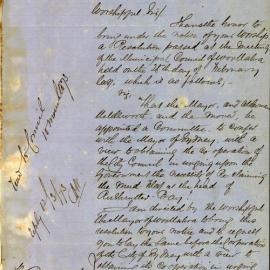 Worshipful Sir
I have the honor to
bring under the notice of your Worship
a Resolution passed at the Meeting
of the Municipal Council of Woollahra
held on the 24th day of February
last, which is as follows,
viz
That the Mayor, and Alderman
and the mover, be
appointed a Committee to confer
with the Mayor of Sydney with a
view to obtaining the co-operation of
the City Council in urging upon the
Government the necessity of Reclaiming
the Mud Flat at the head of
Rushcutter Bay.
I am directed by the Worshipful
The Mayor of Woollahra to bring this
resolution to your notice and to request
you to lay the same before the Corporation
of the City of Sydney with a view to
obtaining its co-operation in urging
Read to Council